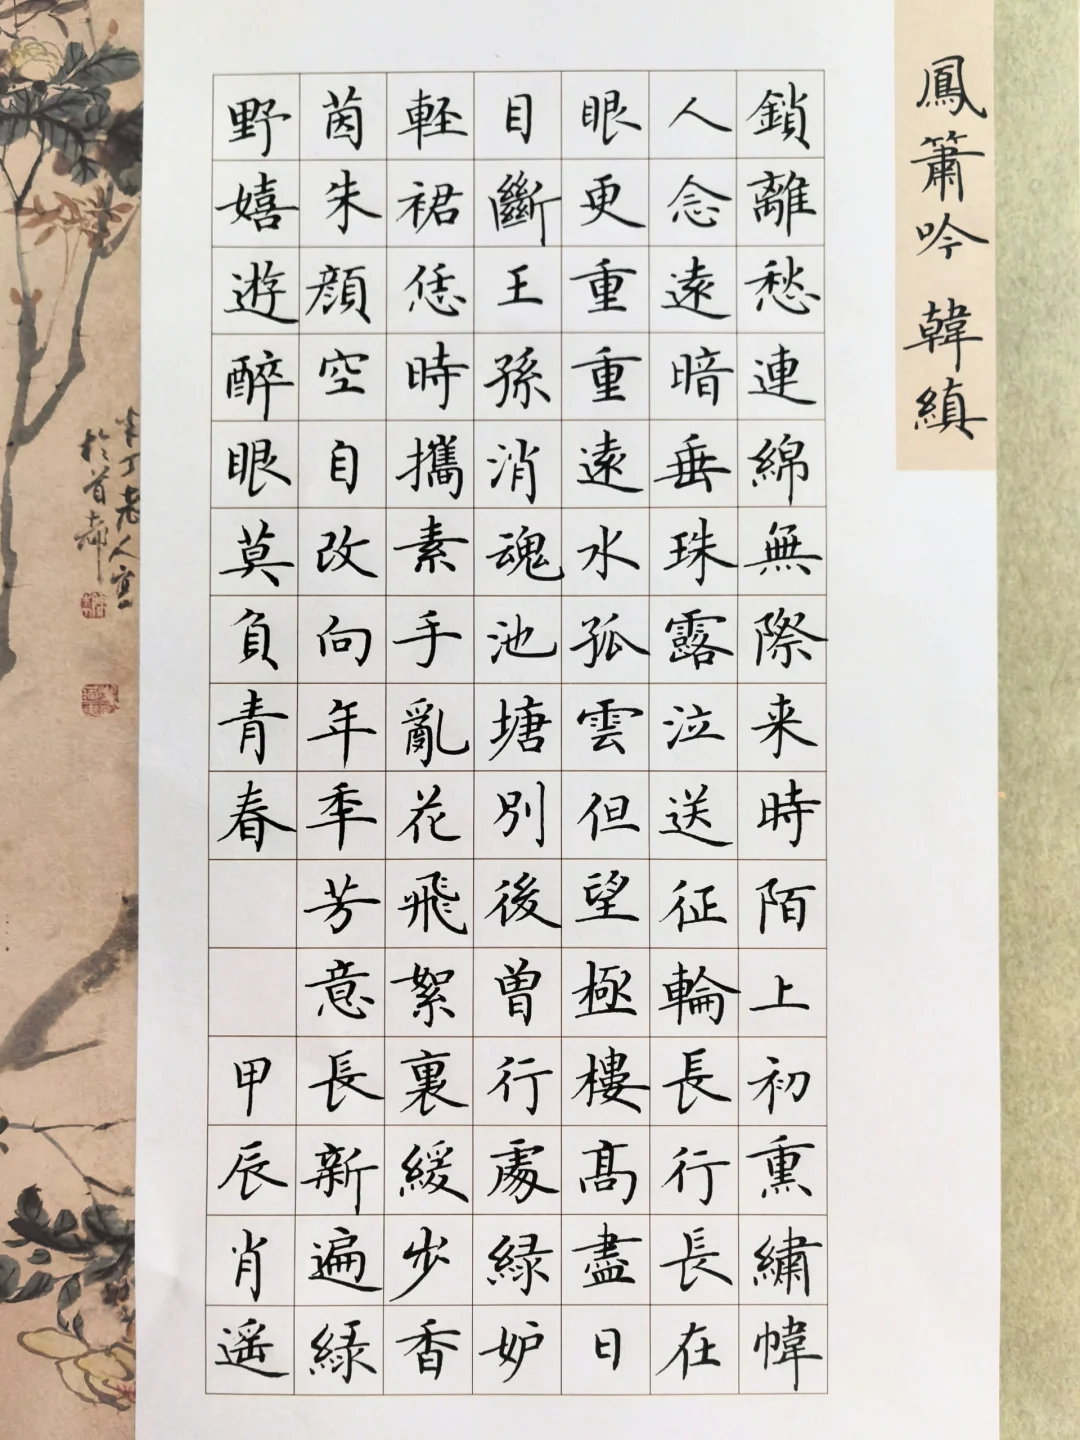 鳳簫吟 韓縝
鎖離愁連綿無際来時陌上初熏繡幃
人念遠暗垂珠露泣送征輪長行長在
眼更重重遠水孤雲但望極樓高盡日
目斷王孫消魂池塘別後曽行處緑妒
輕裙恁時攜素手亂花飛絮裏緩步香
茵朱顔空自改向年年芳意長新遍緑
野嬉遊醉眼莫負青春
甲辰肖遥
辛丁老人寫
於首都